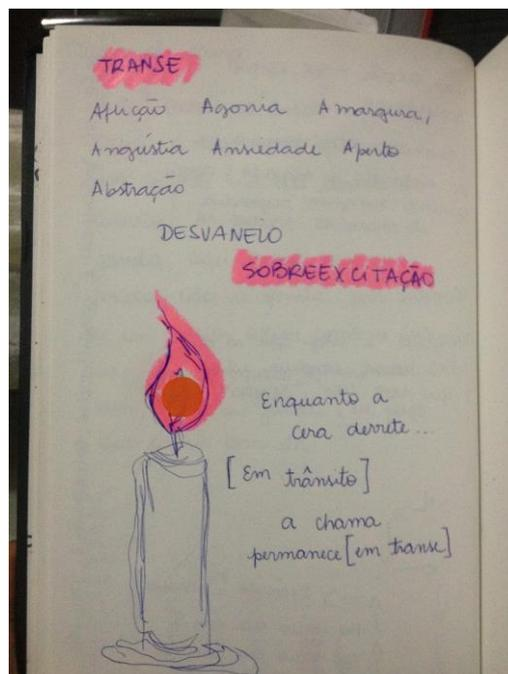 TRANSE
Aflição Agonia Amargura,
Angústia Ansiedade Aperto
Abstração
DESVANEIO
SOBREEXCITAÇÃO
Enquanto a
cera derrete...
[Em trânsito]
a chama
permanece [em transe]